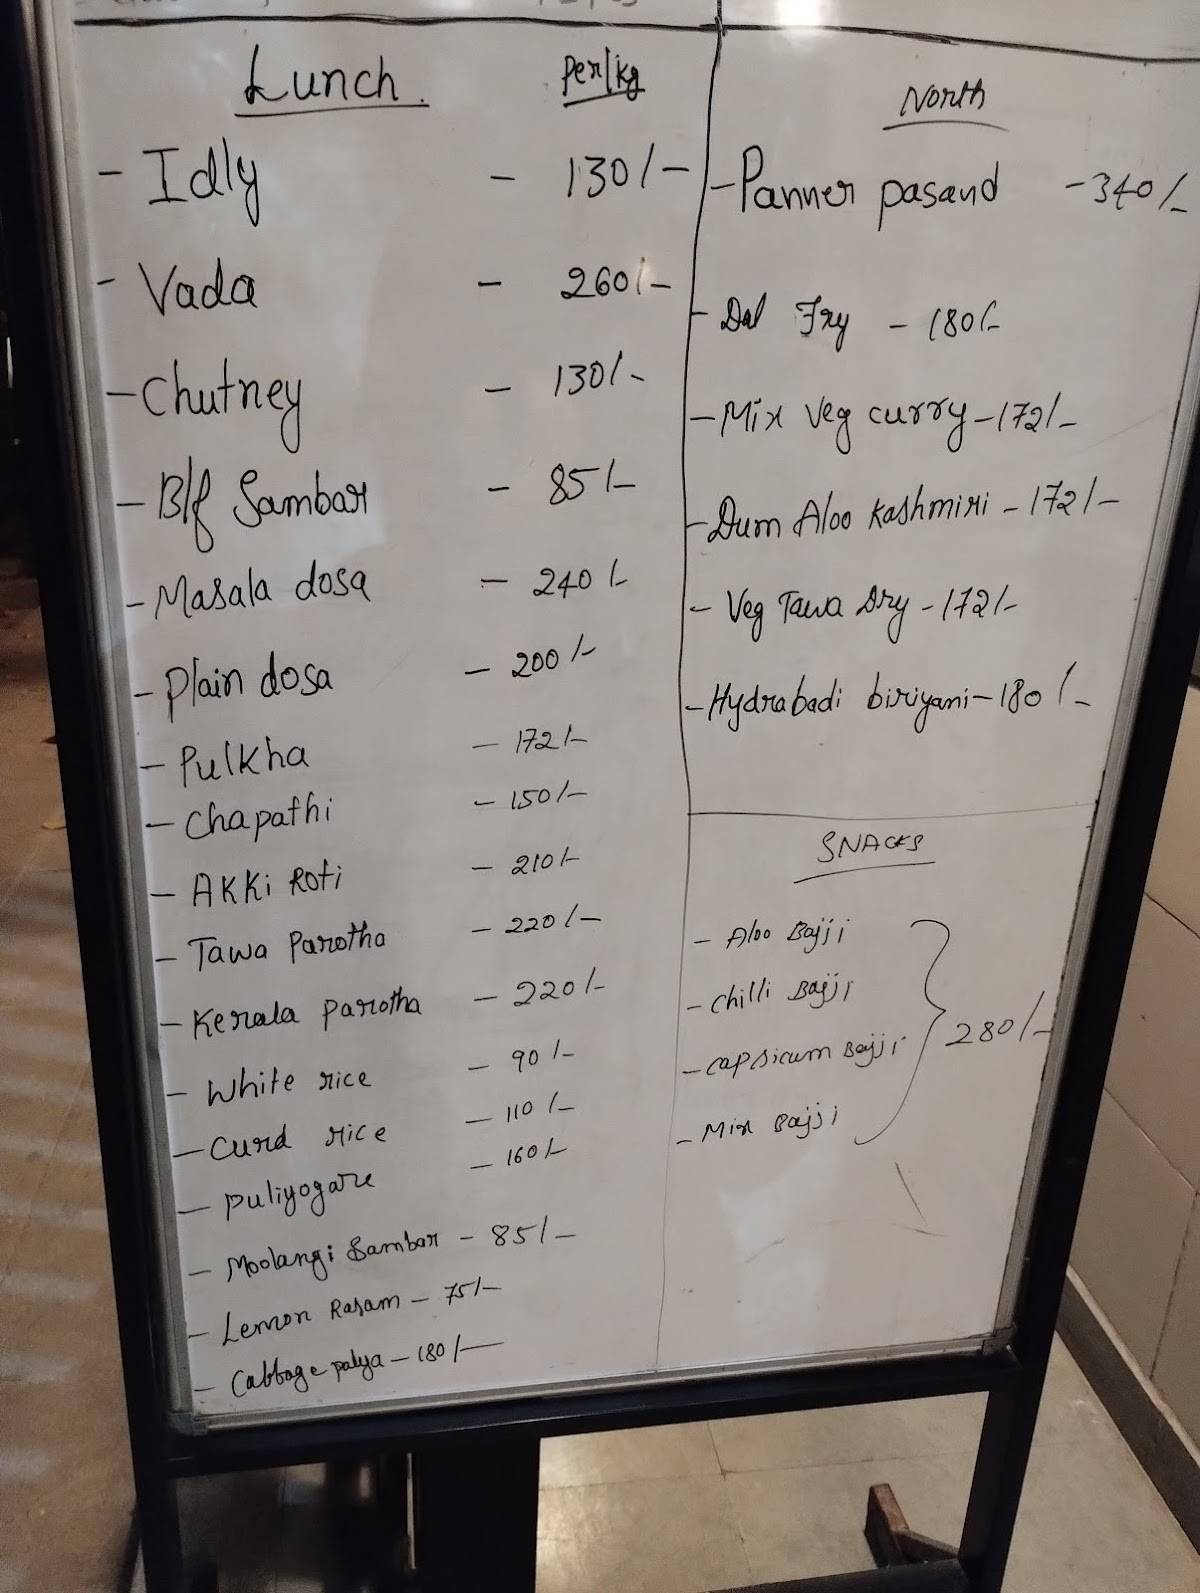 Lunch Per/kg
- Idly - 130/-
- Vada - 260/-
- Chutney - 130/-
- B/f Sambar - 85/-
- Masala dosa - 240/-
- Plain dosa - 200/-
- Pulkha - 172/-
- Chapathi - 150/-
- Akki Roti - 210/-
- Tawa Parotha - 220/-
- Kerala parotha - 220/-
- White rice - 90/-
- Curd rice - 110/-
- Puliyogare - 160/-
- Moolangi Sambar - 85/-
- Lemon Rasam - 75/-
- Cabbage palya - 180/-
North
- Panner pasand - 340/-
- Dal Fry - 180/-
- Mix Veg curry - 172/-
- Dum Aloo Kashmiri - 172/-
- Veg Tawa Dry - 172/-
- Hydrabadi biriyani - 180/-
SNACKS
- Aloo Bajji
- Chilli Bajji
- Capsicum Bajji
- Mix Bajji
280/-